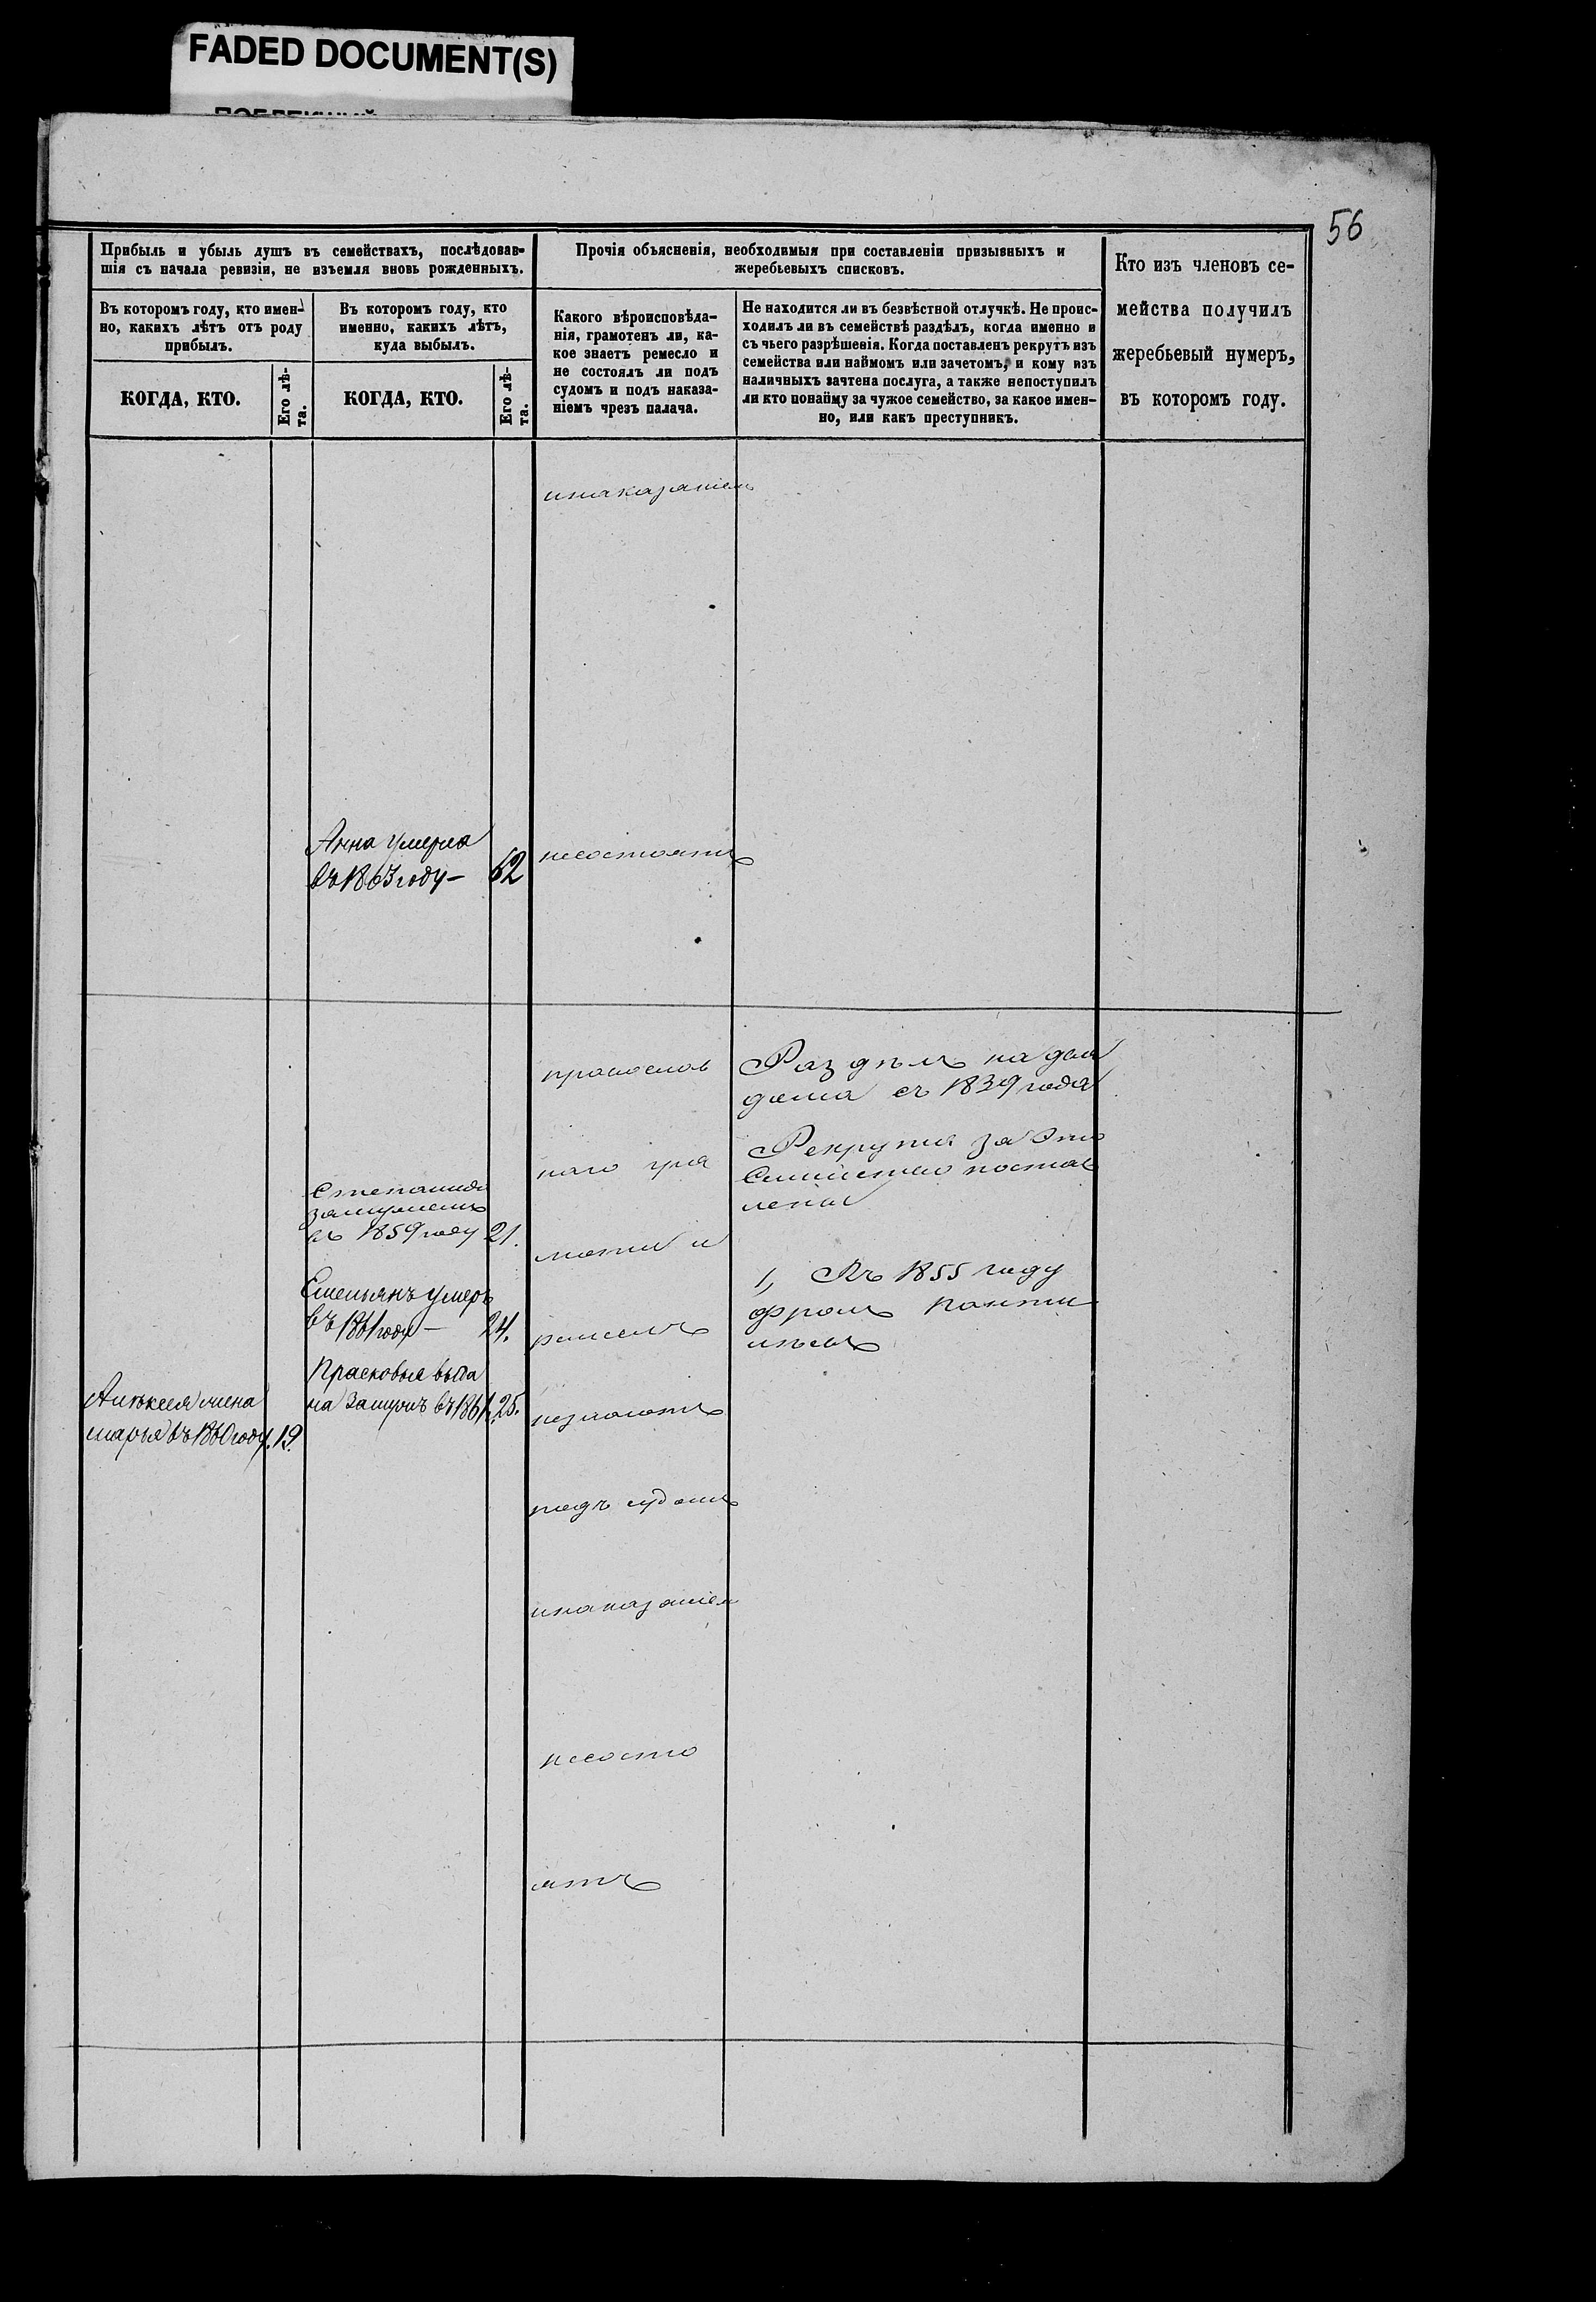 FADED DOCUMENT(S)
56
Прибыль и убыль душъ въ семействахъ, послѣдовав-
шія съ начала ревизіи, не изъемля вновь рожденныхъ.
Въ которомъ году, кто имен-
но, какихъ лѣтъ отъ роду
прибылъ.
КОГДА, КТО.
Его лѣ-
та.
Въ которомъ году, кто
именно, какихъ лѣтъ,
куда выбылъ.
КОГДА, КТО.
Его лѣ-
та.
Прочія объясненія, необходимыя при составленіи призывныхъ и
жеребьевыхъ списковъ.
Какого вѣроисповѣда-
нія, грамотенъ ли, ка-
кое знаетъ ремесло и
не состоялъ ли подъ
судомъ и подъ наказа-
ніемъ чрезъ палача.
Не находится ли въ безвѣстной отлучкѣ. Не проис-
ходилъ ли въ семействѣ раздѣлъ, когда именно и
съ чьего разрѣшенія. Когда поставленъ рекрутъ изъ
семейства или наймомъ или зачетомъ, и кому изъ
наличныхъ зачтена послуга, а также непоступилъ
ли кто понайму за чужое семейство, за какое имен-
но, или какъ преступникъ.
Кто изъ членовъ се-
мейства получилъ
жеребьевый нумеръ,
въ которомъ году.
инаказаніемъ
Анна умерла
въ 1863 году — 62
несостоятъ
православ
наго гра
моти и
ремеслъ
незнаютъ
подъ судомъ
инаказаніем
несосто
ятъ
Раздѣлъ на два
дома съ 1839 года
Рекрутъ за Это
Семейство постав
лены
1, Въ 1855 году
Степанида
замужемъ
въ 1859 году 21.
Емельянъ умеръ
въ 1861 году — 24.
Прасковья выба
на Замужъ въ 1861. 25.
Алексея жена
марья въ 1860 году. 19.